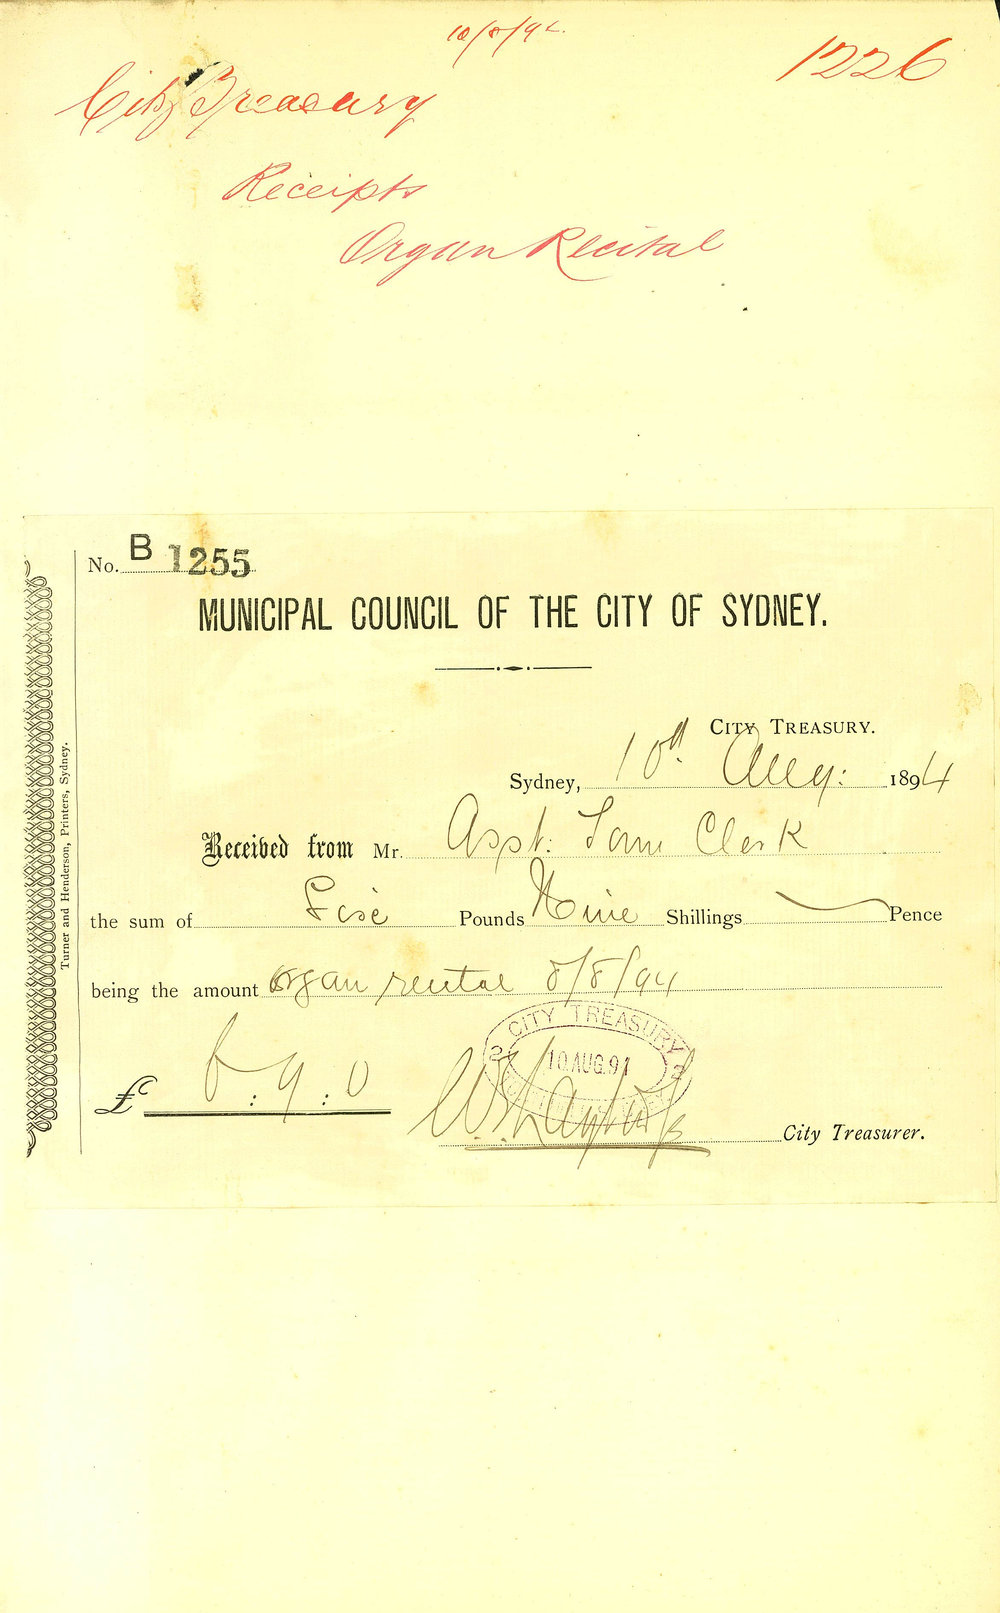 10/8/94
1226
City Treasury
Receipts
Organ Recital
No. B 1255
MUNICIPAL COUNCIL OF THE CITY OF SYDNEY.
CITY TREASURY.
Sydney, 10th Aug: 1894
Received from Mr. Asst: Town Clerk
the sum of Six Pounds Nine Shillings Pence
being the amount organ recital 8/8/94
£ 6:9:0
CITY TREASURY
2 10.AUG.94 2
City Treasurer.
Turner and Henderson, Printers, Sydney.